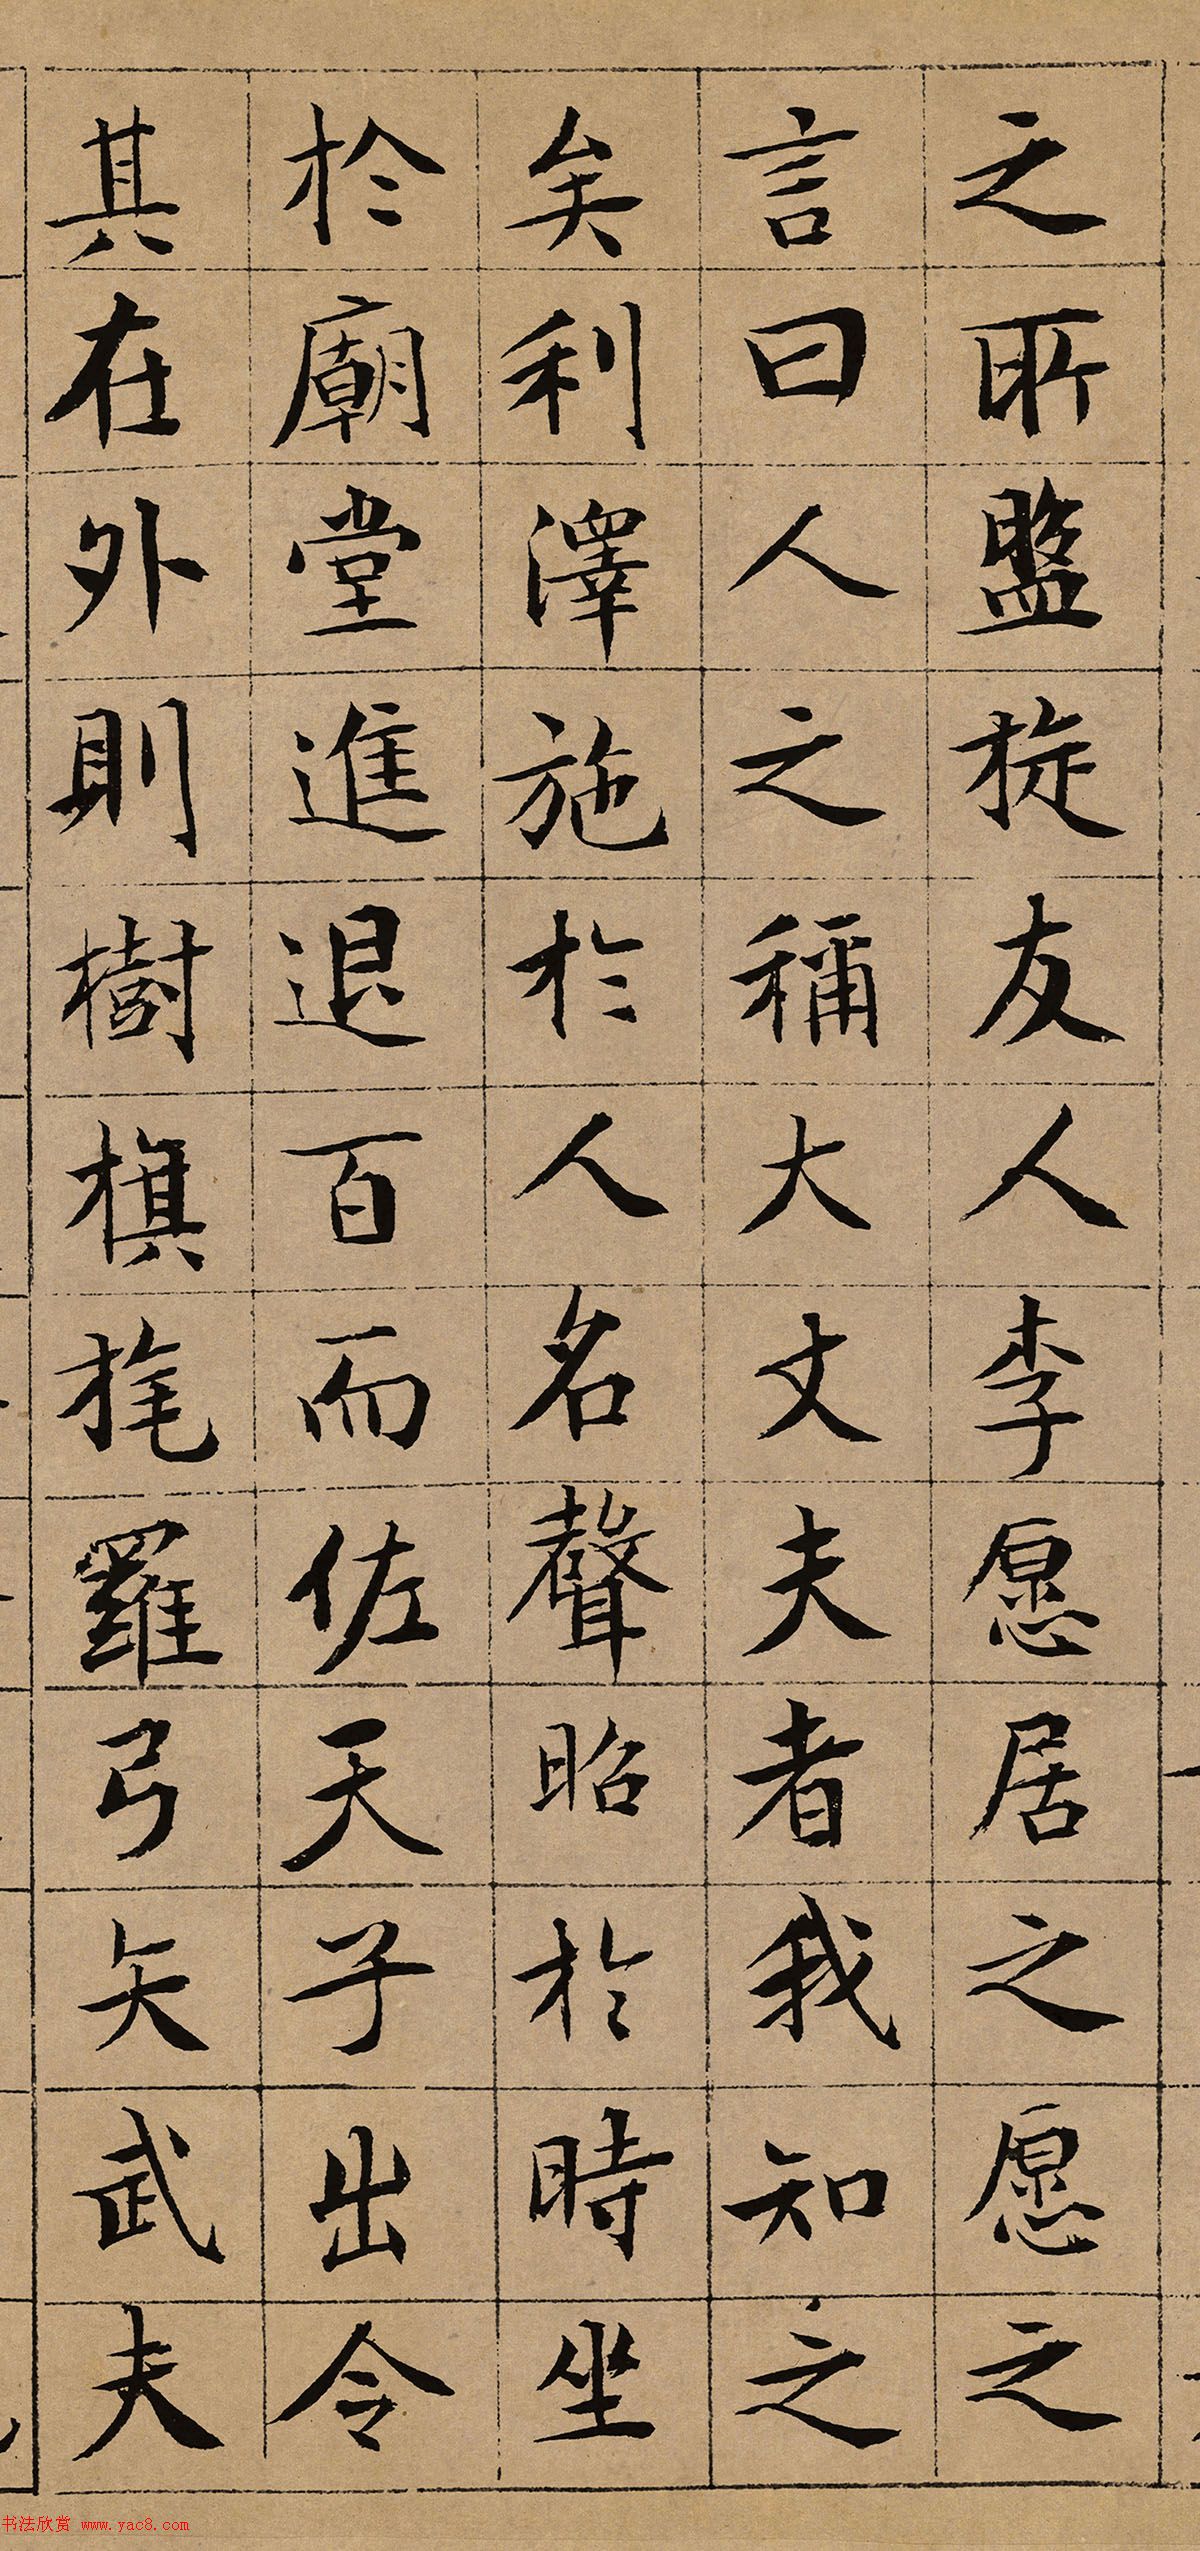 之所盤旋友人李愿居之愿之
言曰人之稱大丈夫者我知之
矣利澤施於人名聲昭於時坐
於廟堂進退百而佐天子出令
其在外則樹旗旄羅弓矢武夫
书法欣赏 www.yac8.com